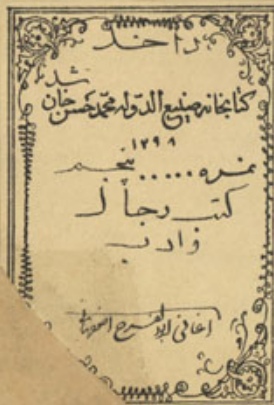 داخل
شد
کتابخانه صنیع الدوله محمد حسن خان
۱۲۹۸
نمره ...... پنجم
کتب رجال
و ادب
اغانی ابو الفرج اصفهانی